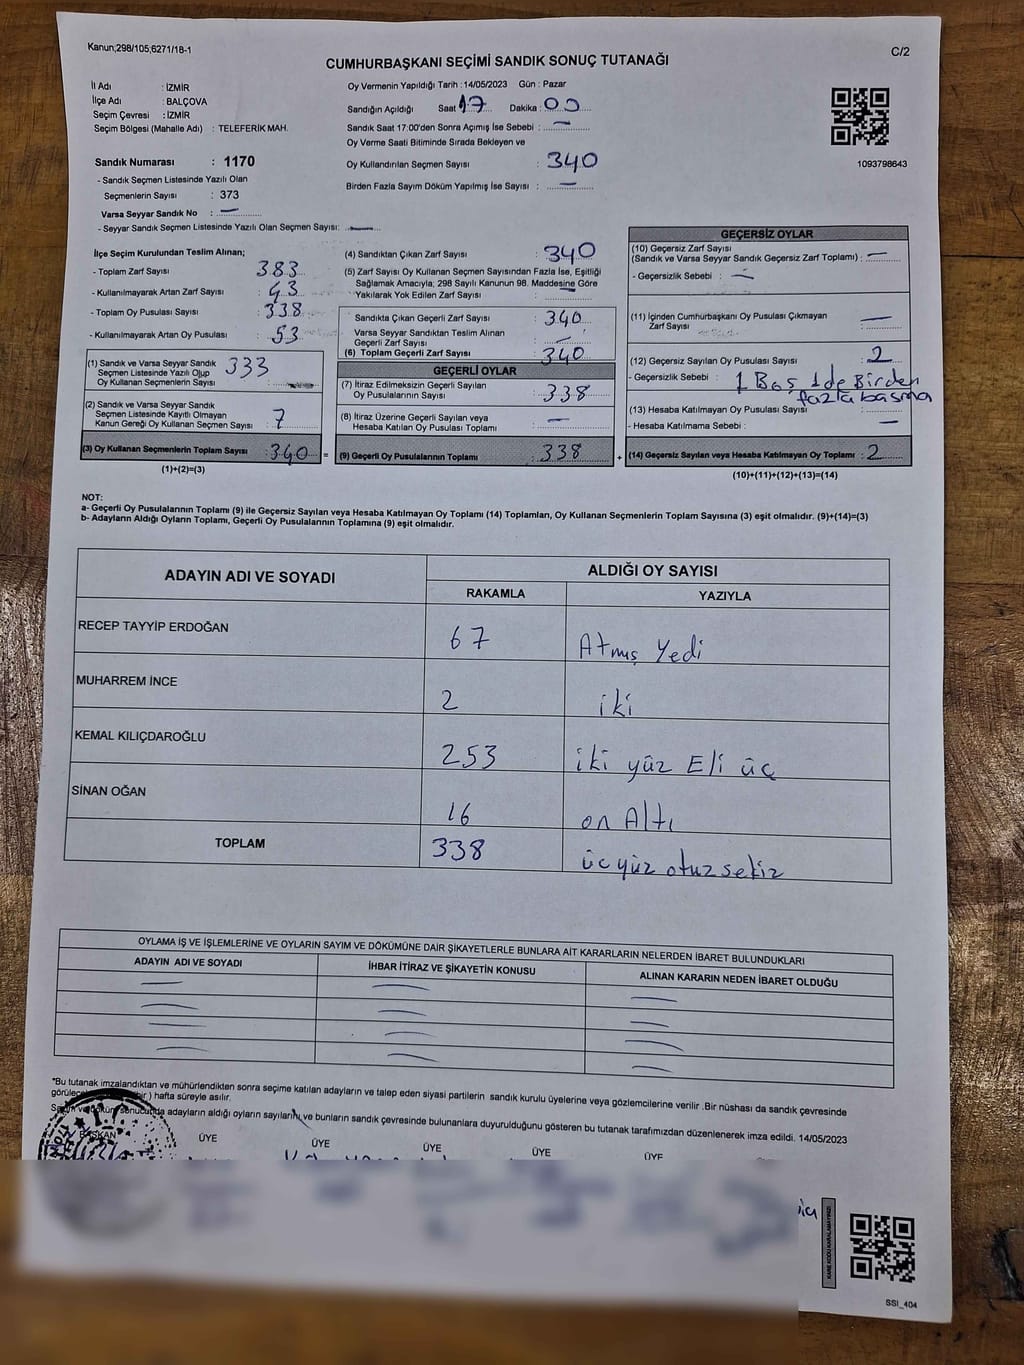 Kanun;298/105;6271/18-1
C/2
CUMHURBAŞKANI SEÇİMİ SANDIK SONUÇ TUTANAĞI
İl Adı : İZMİR
İlçe Adı : BALÇOVA
Seçim Çevresi : İZMİR
Seçim Bölgesi (Mahalle Adı) : TELEFERİK MAH.
Sandık Numarası : 1170
- Sandık Seçmen Listesinde Yazılı Olan
Seçmenlerin Sayısı : 373
Varsa Seyyar Sandık No : —
- Seyyar Sandık Seçmen Listesinde Yazılı Olan Seçmen Sayısı: —
Oy Vermenin Yapıldığı Tarih : 14/05/2023 Gün : Pazar
Sandığın Açıldığı Saat 17 Dakika : 00
Sandık Saat 17:00'den Sonra Açımış İse Sebebi : —
Oy Verme Saati Bitiminde Sırada Bekleyen ve
Oy Kullandırılan Seçmen Sayısı : 340
Birden Fazla Sayım Döküm Yapılmış İse Sayısı : —
1093798643
İlçe Seçim Kurulundan Teslim Alınan;
- Toplam Zarf Sayısı : 383
- Kullanılmayarak Artan Zarf Sayısı : 43
- Toplam Oy Pusulası Sayısı : 338
- Kullanılmayarak Artan Oy Pusulası : 53
(1) Sandık ve Varsa Seyyar Sandık
Seçmen Listesinde Yazılı Olup
Oy Kullanan Seçmenlerin Sayısı : 333
(2) Sandık ve Varsa Seyyar Sandık
Seçmen Listesinde Kayıtlı Olmayan
Kanun Gereği Oy Kullanan Seçmen Sayısı : 7
(3) Oy Kullanan Seçmenlerin Toplam Sayısı : 340 =
(1)+(2)=(3)
(4) Sandıktan Çıkan Zarf Sayısı : 340
(5) Zarf Sayısı Oy Kullanan Seçmen Sayısından Fazla İse, Eşitliği
Sağlamak Amacıyla, 298 Sayılı Kanunun 98. Maddesine Göre
Yakılarak Yok Edilen Zarf Sayısı : —
Sandıkta Çıkan Geçerli Zarf Sayısı : 340
Varsa Seyyar Sandıktan Teslim Alınan
Geçerli Zarf Sayısı : —
(6) Toplam Geçerli Zarf Sayısı : 340
GEÇERLİ OYLAR
(7) İtiraz Edilmeksizin Geçerli Sayılan
Oy Pusulalarının Sayısı : 338
(8) İtiraz Üzerine Geçerli Sayılan veya
Hesaba Katılan Oy Pusulası Toplamı : —
(9) Geçerli Oy Pusulalarının Toplamı : 338 +
GEÇERSİZ OYLAR
(10) Geçersiz Zarf Sayısı
(Sandık ve Varsa Seyyar Sandık Geçersiz Zarf Toplamı) : —
- Geçersizlik Sebebi : —
(11) İçinden Cumhurbaşkanı Oy Pusulası Çıkmayan
Zarf Sayısı : —
(12) Geçersiz Sayılan Oy Pusulası Sayısı : 2
- Geçersizlik Sebebi : 1 Boş 1de Birden
fazla basma
(13) Hesaba Katılmayan Oy Pusulası Sayısı :
- Hesaba Katılmama Sebebi : —
(14) Geçersiz Sayılan veya Hesaba Katılmayan Oy Toplamı : 2
(10)+(11)+(12)+(13)=(14)
NOT:
a- Geçerli Oy Pusulalarının Toplamı (9) ile Geçersiz Sayılan veya Hesaba Katılmayan Oy Toplamı (14) Toplamları, Oy Kullanan Seçmenlerin Toplam Sayısına (3) eşit olmalıdır. (9)+(14)=(3)
b- Adayların Aldığı Oyların Toplamı, Geçerli Oy Pusulalarının Toplamına (9) eşit olmalıdır.
ADAYIN ADI VE SOYADI
ALDIĞI OY SAYISI
RAKAMLA YAZIYLA
RECEP TAYYİP ERDOĞAN 67 Atmış Yedi
MUHARREM İNCE 2 iki
KEMAL KILIÇDAROĞLU 253 iki yüz Eli üç
SİNAN OĞAN 16 on Altı
TOPLAM 338 üç yüz otuz sekiz
OYLAMA İŞ VE İŞLEMLERİNE VE OYLARIN SAYIM VE DÖKÜMÜNE DAİR ŞİKAYETLERLE BUNLARA AİT KARARLARIN NELERDEN İBARET BULUNDUKLARI
ADAYIN ADI VE SOYADI İHBAR İTİRAZ VE ŞİKAYETİN KONUSU ALINAN KARARIN NEDEN İBARET OLDUĞU
"Bu tutanak imzalandıktan ve mühürlendikten sonra seçime katılan adayların ve talep eden siyasi partilerin sandık kurulu üyelerine veya gözlemcilerine verilir .Bir nüshası da sandık çevresinde
hafta süreyle asılır.
sonucunda adayların aldığı oyların sayıların ve bunların sandık çevresinde bulunanlara duyurulduğunu gösteren bu tutanak tarafımızdan düzenlenerek imza edildi. 14/05/2023
BAŞKAN ÜYE ÜYE ÜYE ÜYE ÜYE
KARE KODU KARALAMAYINIZ!
SSI_404